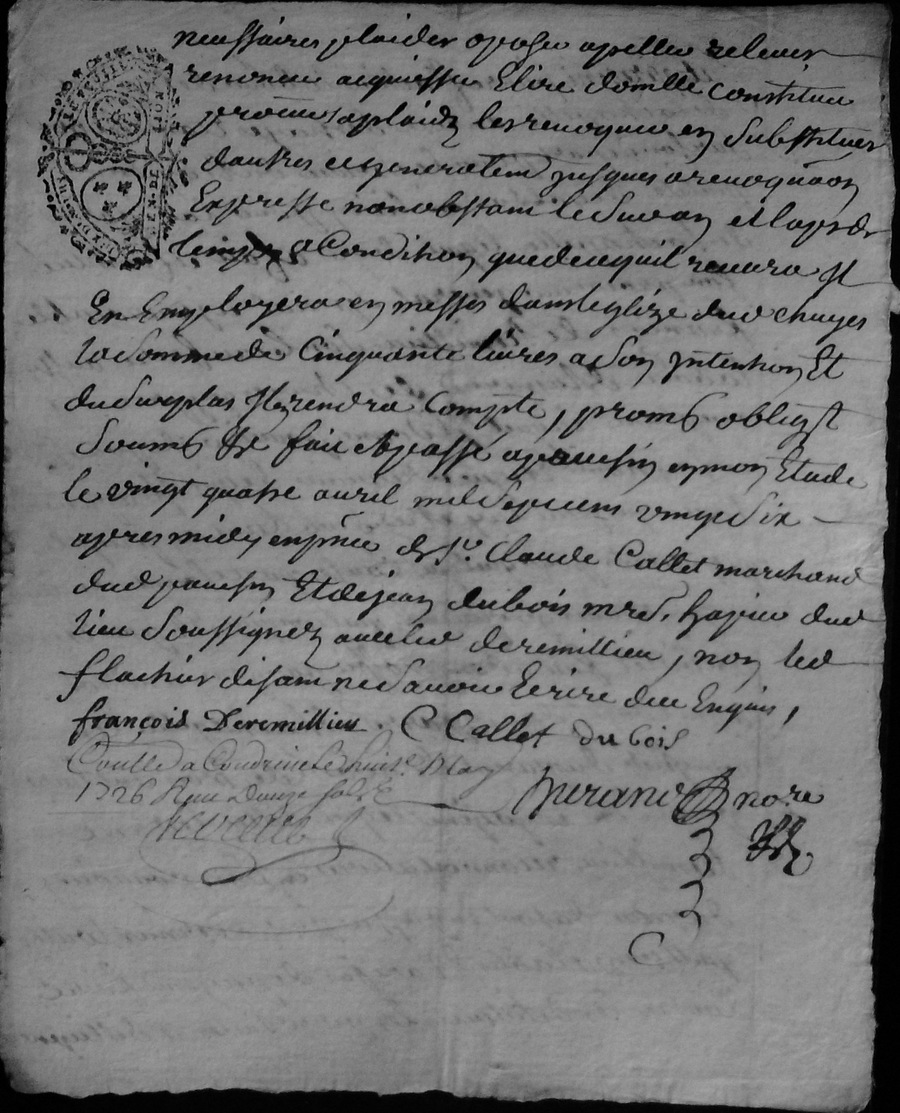 necessaires plaider oposer apeller relever
renoncer acquiesser Elire domille constituer
procurs a plaids les revoquer en substituer
dautres et generalem jusques a revoquaon
Expresse nonobstant le suran et laps de
temps a Condition que de ce quil recevra Jl
En Employera en messes dans leglize dud chuyes
la somme de Cinquante livres a son Jntention Et
du surplus Jl rendra Compte, proms oblig
soums &c fait et passé a pavesin en mon Etude
le vingt quatre avril mil sept cens vingt six
apres midy en pnce de sr. Claude Callet marchand
dud pavesin Et de jean dubois mre dud
lieu soussignez avec led deremillieu, non led
flachier disant ne savoir Ecrire de ce Enquis,
françois Deremillieu. C Callet du bois
Conllé a Condrieu le huit May
1726 Reçu Douze sols
Durand nore